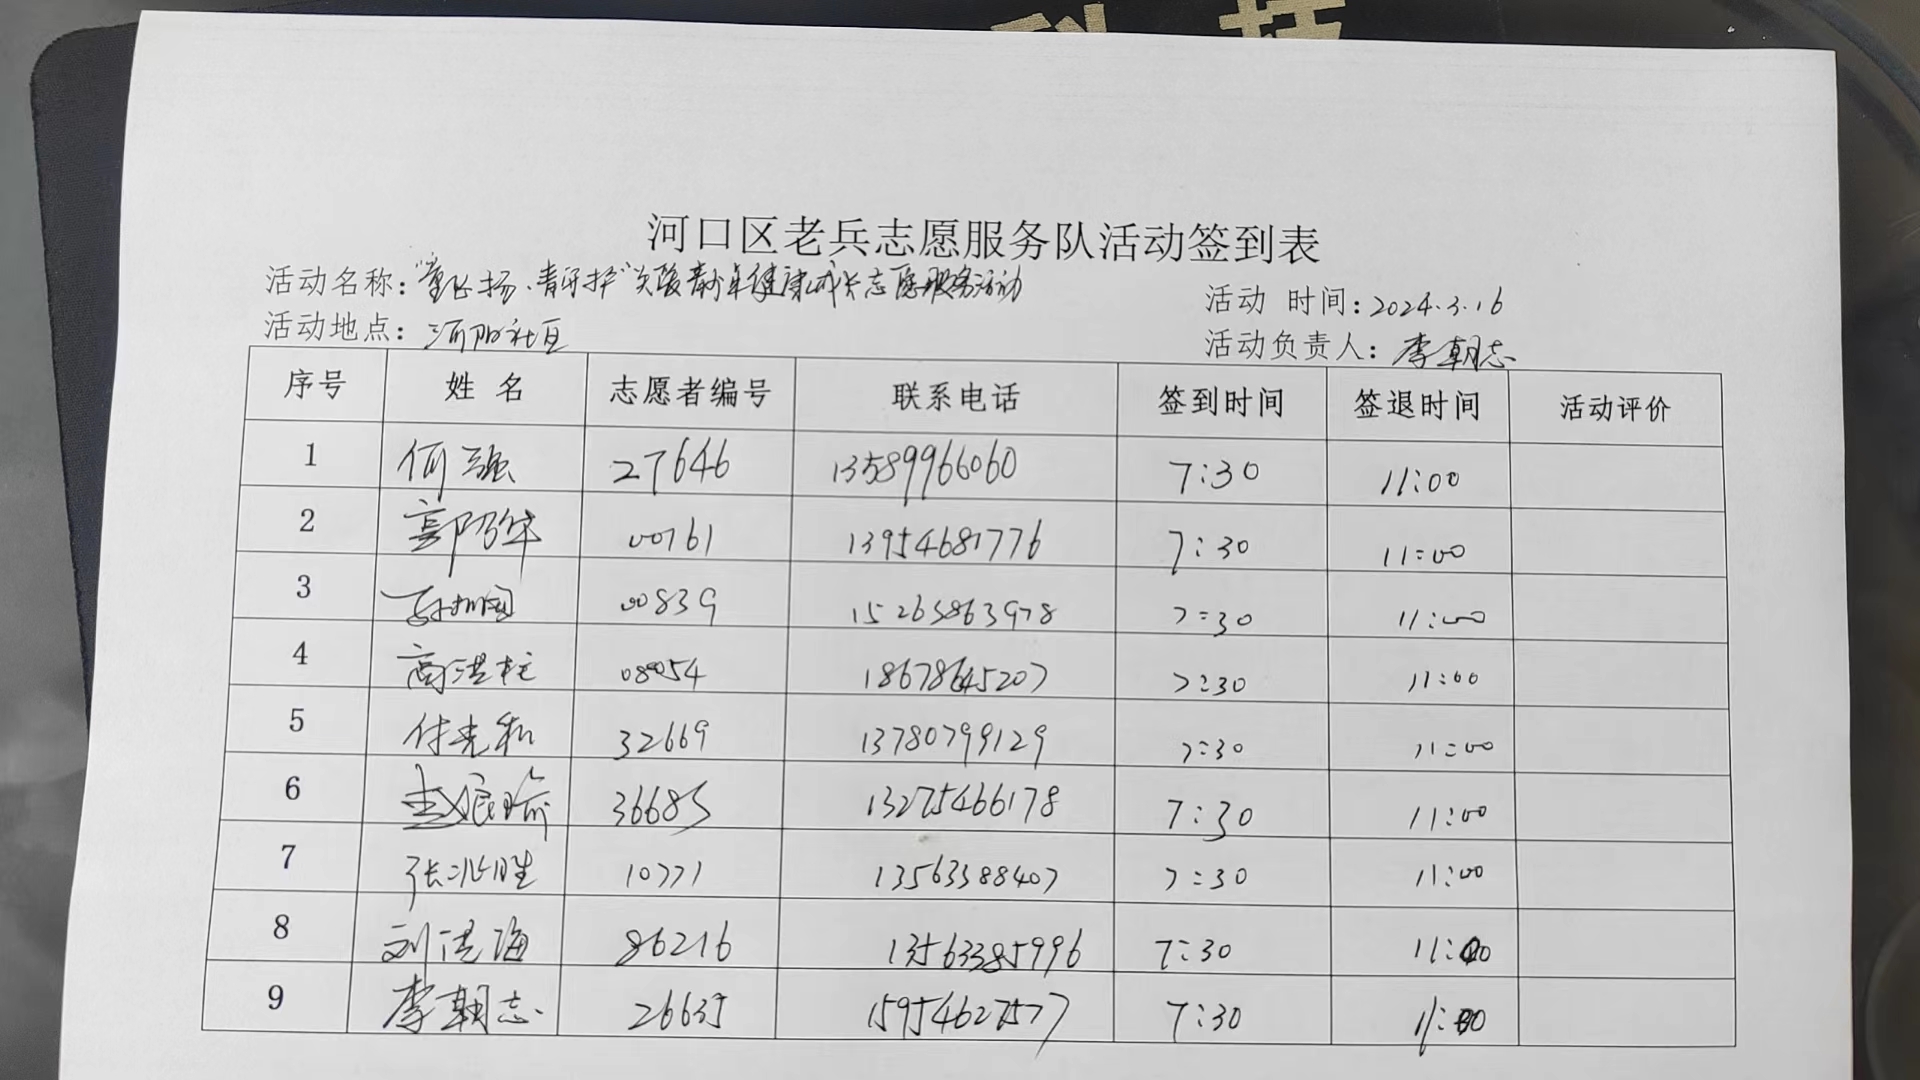 科技
河口区老兵志愿服务队活动签到表
活动名称："童飞扬·青守护"关爱青少年健康成长志愿服务活动
活动时间：2024.3.16
活动地点：河阳社区
活动负责人：李朝志
序号 姓名 志愿者编号 联系电话 签到时间 签退时间 活动评价
1 何强 27646 13589966060 7:30 11:00
2 郭乃华 00761 13954681776 7:30 11:00
3 00839 15263863978 7:30 11:00
4 高洪柱 08054 18678645207 7:30 11:00
5 付光和 32669 13780799129 7:30 11:00
6 36685 13275466178 7:30 11:00
7 张兆胜 10771 13563388407 7:30 11:00
8 刘洪海 86216 13563385996 7:30 11:00
9 李朝志 26635 15954627577 7:30 11:00